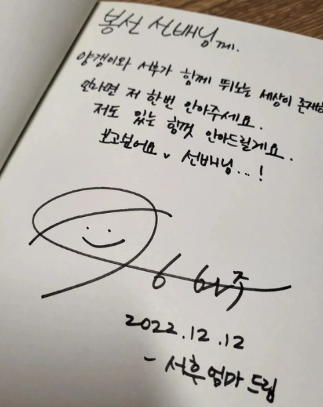 봉선 선배님께.
양갱이와 서부가 함께 뛰노는 세상이 존재한
다면 저 한번 안아주세요.
저도 있는 힘껏 안아드릴게요.
보고싶어요 선배님...!
2022.12.12
- 서후엄마 드림